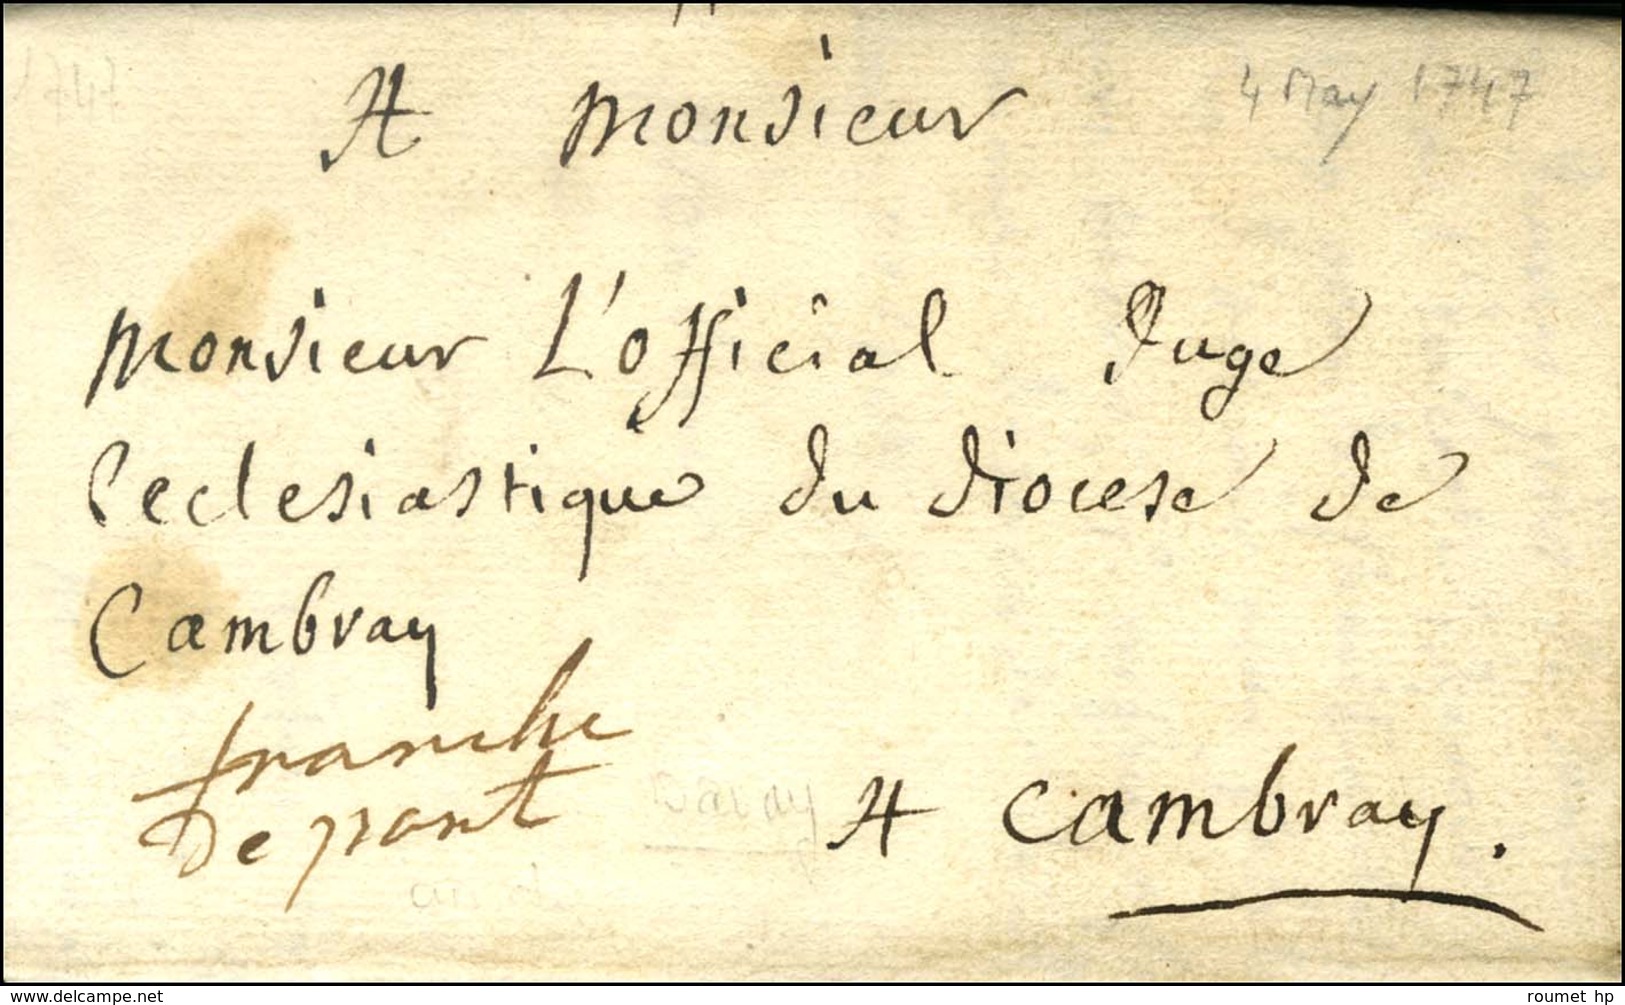 1747
4 May 1747
A monsieur
monsieur L'official Juge
Ecclesiastique du diocese de
Cambray
franche
De port
A Cambray.
delcampe.net
roumet hp